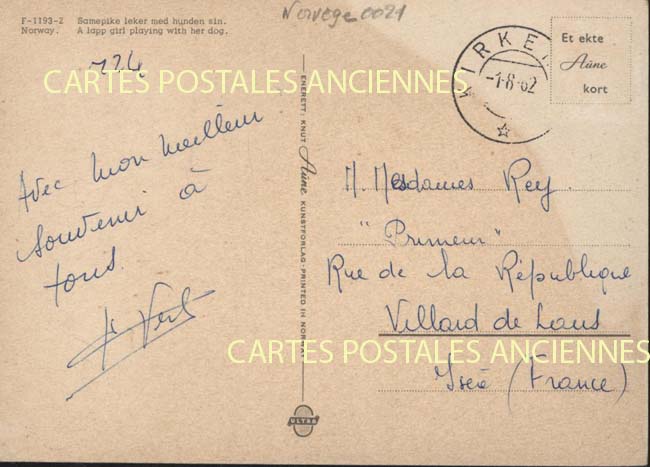 F-1193-Z Samepike leker med hunden sin.
Norway. A lapp girl playing with her dog.
Norvege 0021
724
CARTES POSTALES ANCIENNES
KIRKE
-1-8-62
Et ekte
Aune
kort
Avec mon meilleur
souvenir à
tous.
ENERETT: KNUT Aune KUNSTFORLAG - PRINTED IN NORWAY
M. Mesdames Rey.
"Primeur"
Rue de la République
Villard de Lans
Isère (France)
CARTES POSTALES ANCIENNES
ULTRA